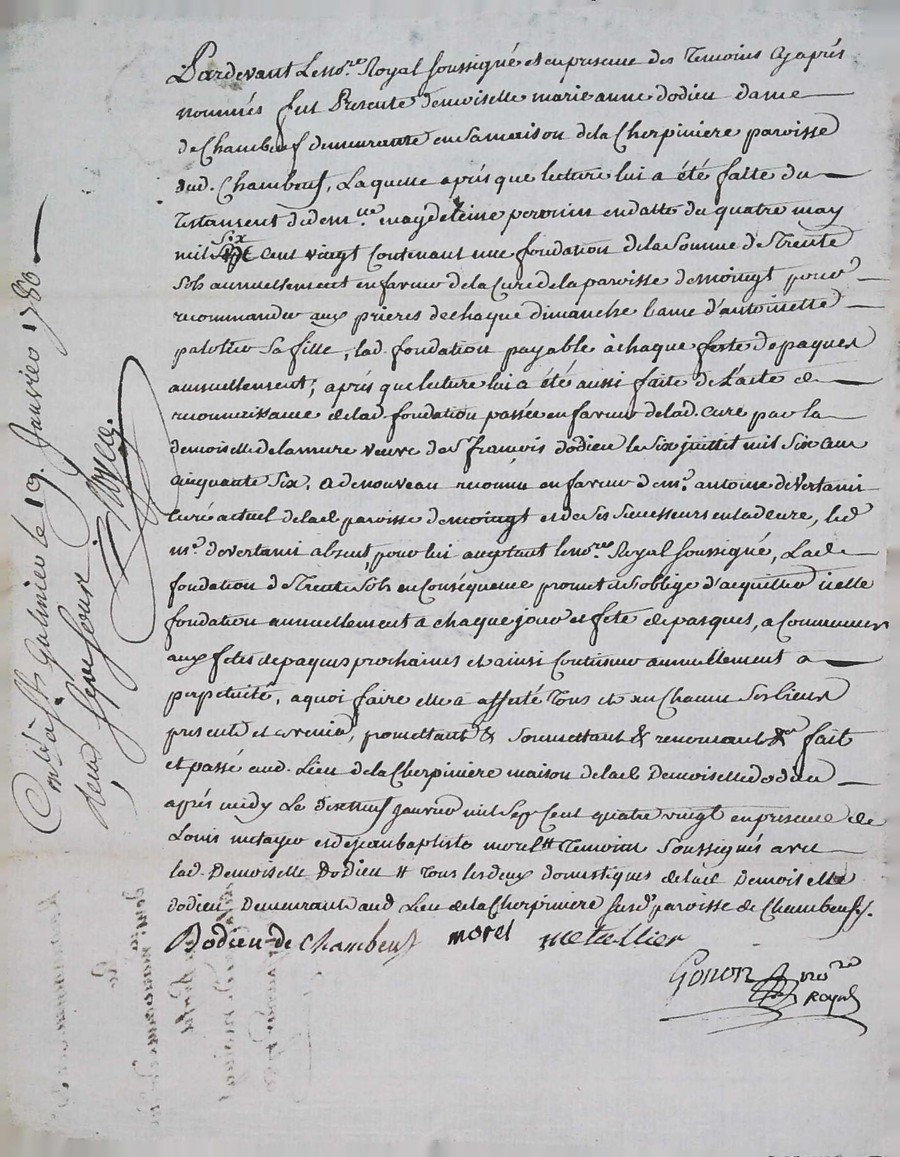 Pardevant Le no.re Royal soussigné et en presence des Temoins cy après
nommés fut Presente demoiselle marie anne dodieu dame
de Chambeuf demeurante en sa maison de la Cherpiniere paroisse
dud. Chambeuf, Laquelle après que lecture lui a été faitte du
Testament de dem.lle magdeleine perrin en datte du quatre may
mil six cent vingt Contenant une fondation de la Somme de Trente
Sols annuellement en faveur de la Cure de la paroisse de moingt pour
recommander aux prieres de chaque dimanche l'ame d'antoinette
sa fille, lad. fondation payable à chaque feste de paques
annuellement; après que lecture lui a été aussi faite de L'acte de
reconnaissance de lad. fondation passée en faveur de lad. cure par la
demoiselle delamure veuve de s.r françois dodieu le six juillet mil six cent
cinquante six, a de nouveau reconnu en faveur de m.e antoine de Vertamy
curé actuel de lad. paroisse de moingt et de ses successeurs en lad cure, led
m.e de vertamy absent, pour lui acceptant le no.re Royal soussigné, Lad.
fondation de Trente Sols en conséquence promet et s'oblige d'acquitter icelle
fondation annuellement à chaque jour et fête de pasques, a Commencer
aux fetes de paques prochaines et ainsi Continuer annuellement a
perpetuité, a quoi faire elle a affecté Tous et un Chacun ses lieux
presents et avenir, promettant & soumettant & renonçant &a fait
et passé aud. Lieu de la Cherpiniere maison de lad. Demoiselle dodieu
après midy Le dixneuf janvier mil sept cent quatre vingt en presence de
Louis metayer et de jean baptiste morel # Temoins soussignés avec
lad. Demoiselle Dodieu # Tous les deux domestiques de lad. Demoiselle
dodieu Demeurants aud. Lieu de la Cherpiniere susd. paroisse de Chambeuf.
Dodieu de Chambeuf morel metallier
Gonon no.re
Royal
Con.lé à St Galmier le 19. Janvier 1780